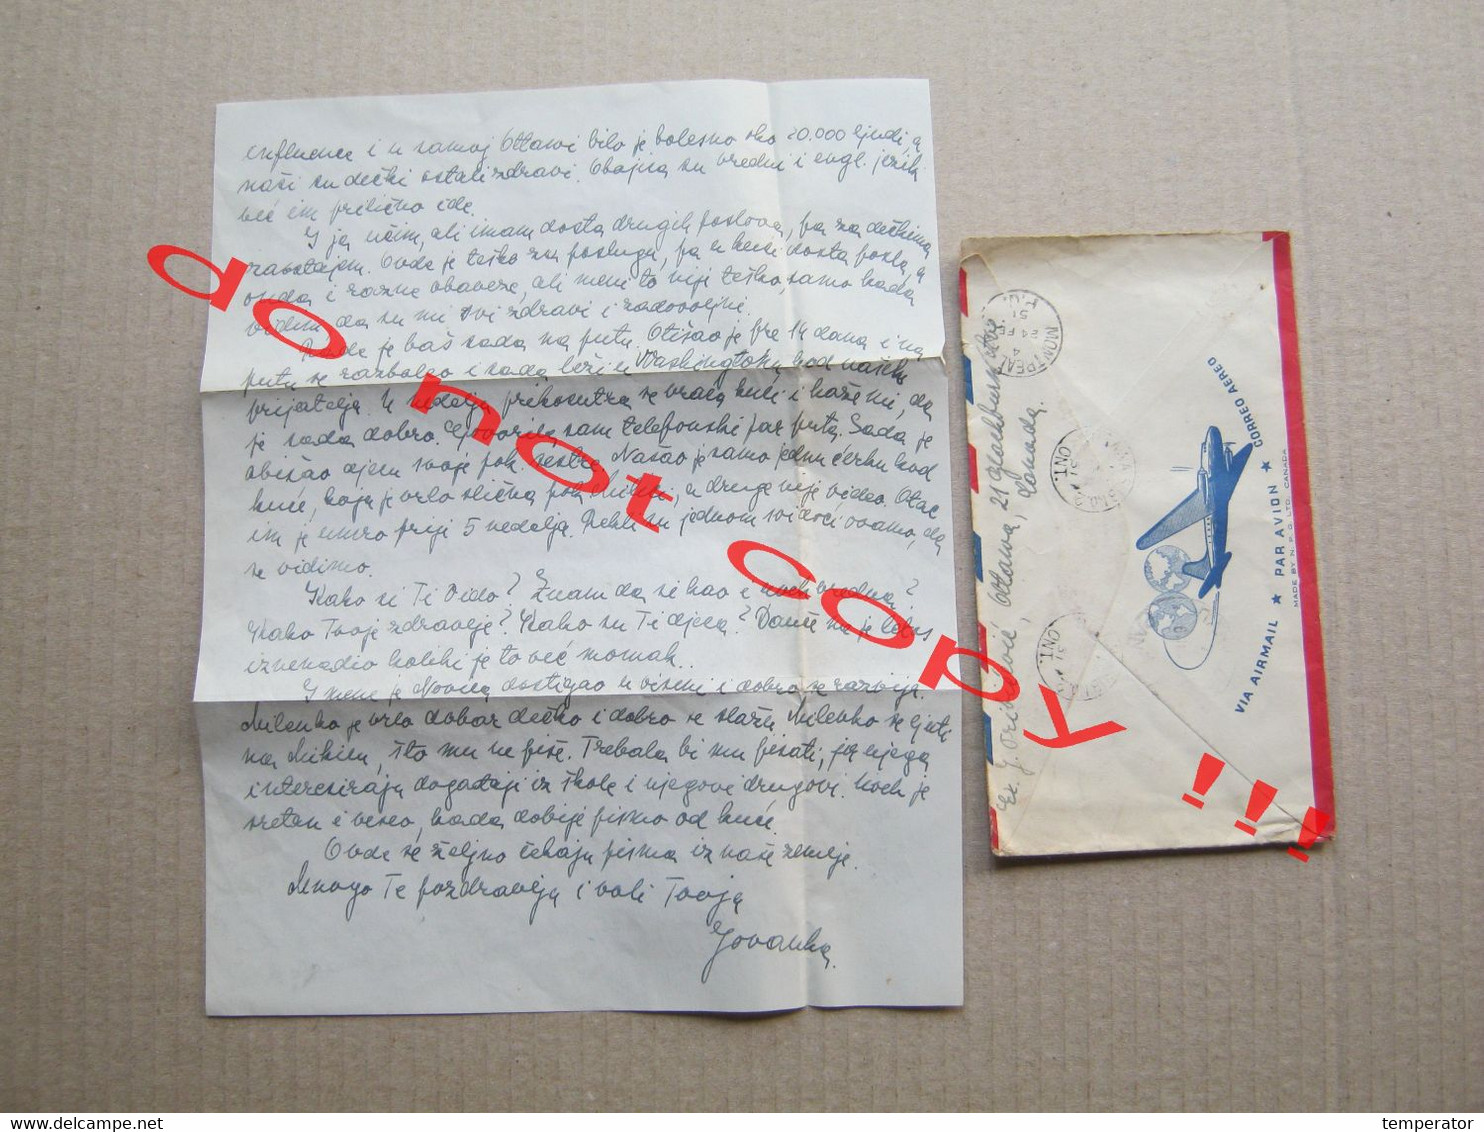 influence i u samoj Ottawi bilo je bolesno oko 20.000 ljudi, a
naši su dečki ostali zdravi. Obojica su vredni i engl. jezik
već im prilično ide.
I ja učim, ali imam dosta drugih poslova, pa za dečkima
zaostajem. Ovde je teško za poslugu, pa u kući dosta posla, a
onda i razne obaveze, ali meni to nije teško, samo kada
vidim da su mi svi zdravi i zadovoljni.
je baš sada na putu. Otišao je pre 14 dana i na
putu se razboleo i sada leži u Washingtonu kod naših
prijatelja. U nedelju prekosutra se vraća kući i kaže mi, da
je sada dobro. Govorila sam telefonski par puta. Sada je
obišao djecu svoje pok. sestre. Našao je samo jednu ćerku kod
kuće, koja je vrlo slična pok. a druge nije video. Otac
im je umro prije 5 nedelja. Rekli su jednom svi doći ovamo, da
se vidimo.
Kako si Ti Dido? Znam da si kao i uvek vredna?
Kako Tvoje zdravlje? Kako su Ti djeca? me je
iznenadio koliki je to već momak..
I mene je Novica dostigao u visini i dobro se razvija.
Milenko je vrlo dobar dečko i dobro se slažu. Milenko se ljuti
na što mu ne piše. Trebala bi mu pisati, jer njega
interesiraju događaji iz škole i njegove drugovi. Uvek je
sretan i veseo, kada dobije pismo od kuće.
Ovde se željno čekaju pisma iz naše zemlje.
Mnogo Te pozdravlja i voli Tvoja
Jovanka.
do not copy !!!
Ottawa, 21 Blackburn Ave
Canada.
MONTREAL
P.Q.
51
ONT.
ONT.
VIA AIRMAIL ★ PAR AVION ★ CORREO AEREO
MADE BY N. P. G. LTD. CANADA
delcampe.net
temperator